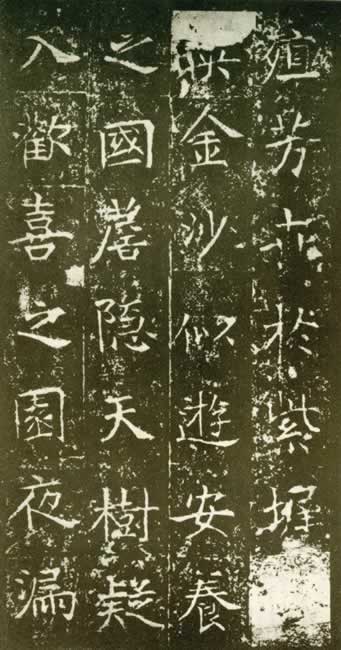 殖芳卉於紫墀
映金沙似遊安養
之國簷隐天樹疑
入歡喜之園夜漏